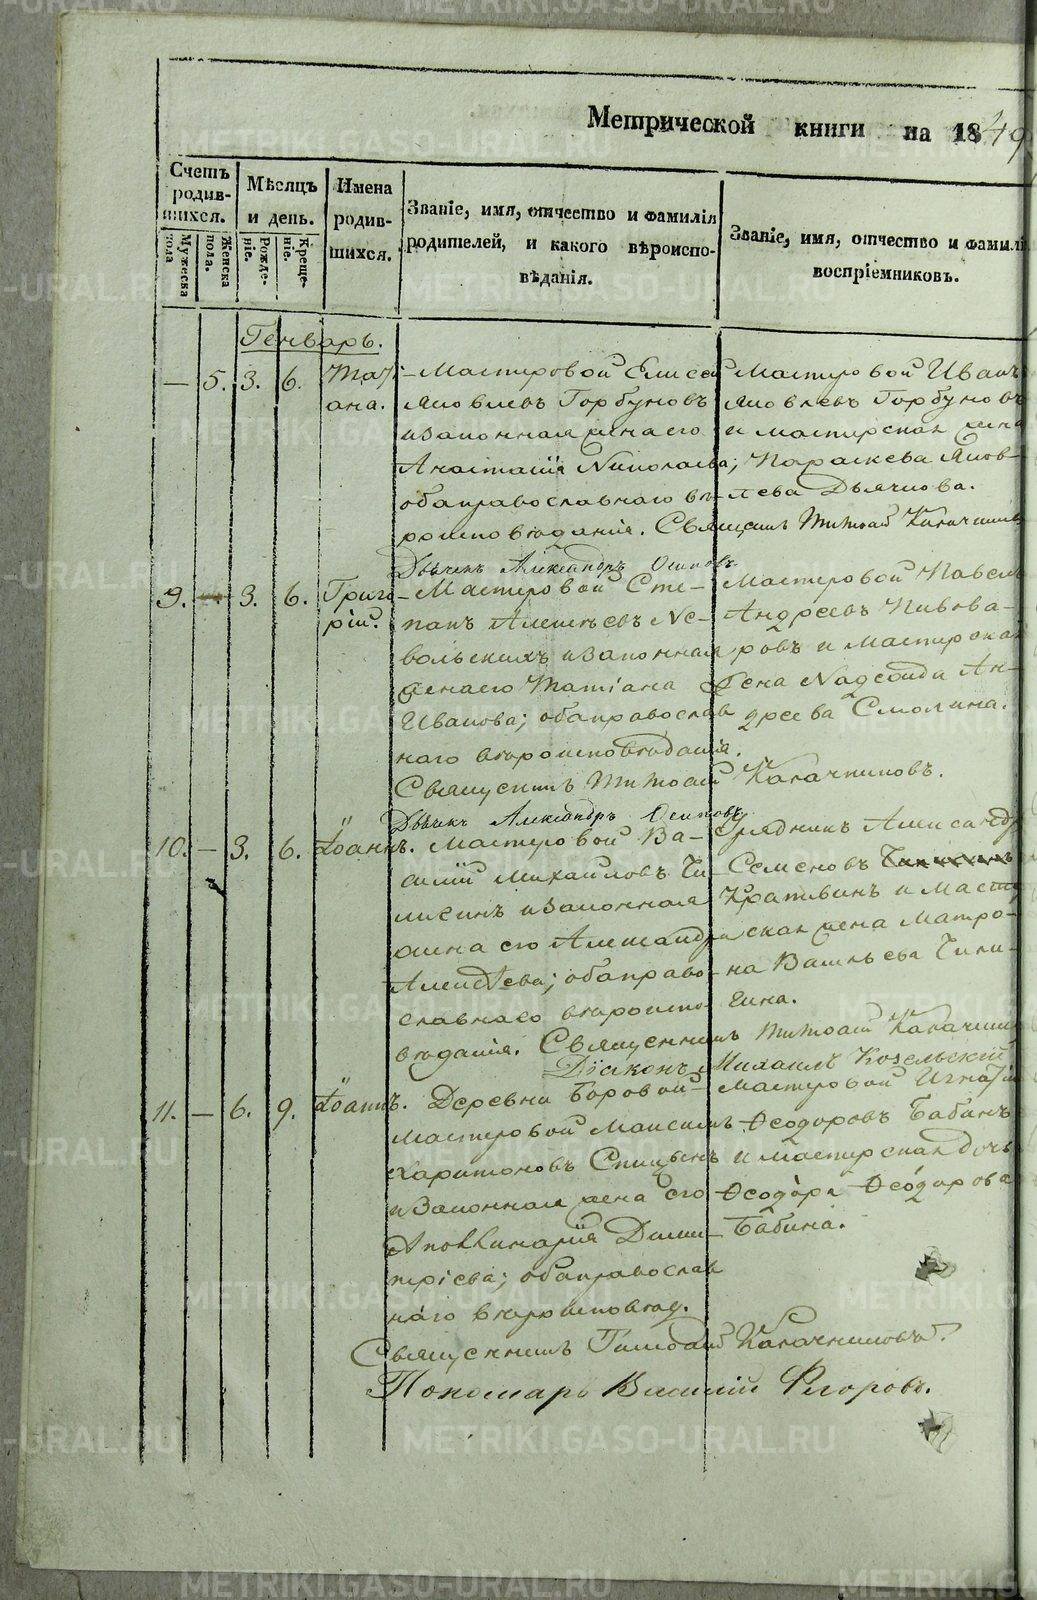 Метрической книги на 1849
Счетъ родив-шихся.
Мужеска пола
Женска пола.
Мѣсяцъ и день.
Рожде-ніе.
Креще-ніе.
Имена родив-шихся.
Званіе, имя, отчество и фамилія родителей, и какого вѣроиспо-вѣданія.
Званіе, имя, отчество и фамилі
воспріемниковъ.
Генварь.
— 5. 3. 6. Таті-
ана.
Мастеровой Елисей
Яковлевъ Горбуновъ
и законная жена его
Анастасія Николаева;
оба православнаго вѣ-
роисповѣданія.
Мастеровой Иванъ
Яковлевъ Горбуновъ
и мастерская жена
Параскева Яков-
лева Дьячкова.
Священникъ Тимоѳей Калачников
Дьячекъ Александръ Осиповъ
9. — 3. 6. Григо
рій.
Мастеровой Сте-
панъ Алексѣевъ Не-
вольскихъ и законная
жена его Татіана
Иванова; оба православ
наго вѣроисповѣданія.
Мастеровой Павелъ
Андреевъ Пивова-
ровъ и мастерская
жена Надежда Ан-
дреева Смолина.
Священникъ Тимоѳей Калачниковъ.
Дьячекъ Александръ Осиповъ
10. — 3. 6. Іоаннъ.
Мастеровой Ва-
силій Михайловъ Чи-
ликинъ и законная
жена его Александра
Алексѣева; оба право-
славнаго вѣроиспо-
вѣданія.
Урядникъ Александръ
Семеновъ
Кративинъ и Масте
рская жена Матро-
на Васильева Чили-
кина.
Священникъ Тимоѳей Калачник
Діаконъ Михаилъ Козельскій
11. — 6. 9. Іоаннъ.
Деревни Боровой
мастеровой Максимъ
Харитоновъ Спицынъ
и законная жена его
Аполлинарія Дими-
тріева; оба православ
наго вѣроисповѣд.
Мастеровой Игнатій
Ѳеодоровъ Бабинъ
и мастерская дочь
Ѳеодора Ѳеодорова
Бабина.
Священникъ Тимоѳей Калачниковъ.
Пономарь Василій Флоровъ.
METRIKI.GASO-URAL.RU